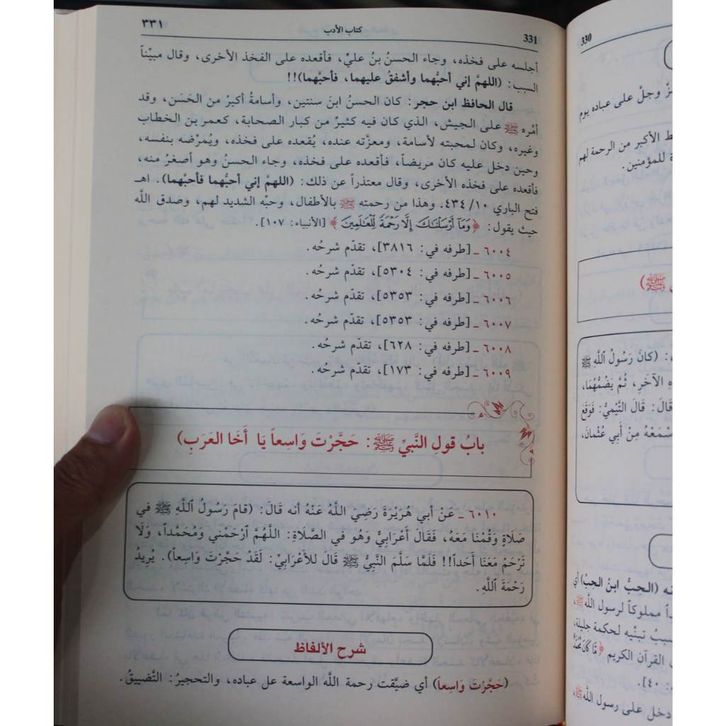 331
كتاب الأدب
٣٣١
أجلسه على فخذه، وجاء الحسنُ بنُ عليٍّ، فأقعده على الفخذ الأخرى، وقال مبيِّناً
السبب: (اللهمَّ إني أحبُّهما وأشفق عليهما، فأحبَّهما)!!
قال الحافظ ابن حجر: كان الحسنُ ابنَ سنتين، وأسامةُ أكبرُ من الحَسَن، وقد
أمَّره ﷺ على الجيش، الذي كان فيه كثيرٌ من كبار الصحابة، كعمر بن الخطاب
وغيره، وكان لمحبته لأسامة، ومعزَّته عنده، يُقعده على فخذه، ويُمرِّضه بنفسه،
وحين دخل عليه كان مريضاً، فأقعده على فخذه، وجاء الحسنُ وهو أصغرُ منه،
فأقعده على فخذه الأخرى، وقال معتذراً عن ذلك: (اللهمَّ إني أحبُّهما فأحبَّهما). اهـ
فتح الباري ٤٣٤/١٠، وهذا من رحمته ﷺ بالأطفال، وحبِّه الشديد لهم، وصدق اللَّه
حيث يقول: ﴿وَمَآ أَرْسَلْنَاكَ إِلَّا رَحْمَةً لِّلْعَالَمِينَ﴾ [الأنبياء: ١٠٧].
٦٠٠٤ ـ [طرفه في: ٣٨١٦]، تقدَّم شرحُه.
٦٠٠٥ ـ [طرفه في: ٥٣٠٤]، تقدَّم شرحُه.
٦٠٠٦ ـ [طرفه في: ٥٣٥٣]، تقدَّم شرحُه.
٦٠٠٧ ـ [طرفه في: ٥٣٥٣]، تقدَّم شرحُه.
٦٠٠٨ ـ [طرفه في: ٦٢٨]، تقدَّم شرحُه.
٦٠٠٩ ـ [طرفه في: ١٧٣]، تقدَّم شرحُه.
بابُ قولِ النبيِّ ﷺ: حَجَّرْتَ وَاسِعاً يَا أَخَا العَرَبِ)
٦٠١٠ ـ عَنْ أبي هُرَيْرَةَ رَضِيَ اللَّهُ عَنْهُ أنه قَالَ: (قامَ رَسُولُ اللَّهِ ﷺ في
صَلَاةٍ وَقُمْنَا مَعَهُ، فَقَالَ أَعْرَابِيٌّ وَهُوَ في الصَّلَاةِ: اللَّهُمَّ ارْحَمْنِي وَمُحَمَّداً، وَلَا
تَرْحَمْ مَعَنَا أَحَداً!! فَلَمَّا سَلَّمَ النَّبِيُّ ﷺ قَالَ لِلأَعْرَابِيِّ: لَقَدْ حَجَّرْتَ وَاسِعاً). يُرِيدُ
رَحْمَةَ اللَّهِ.
شرح الألفاظ
(حَجَّرْتَ وَاسِعاً) أي ضيَّقت رحمة اللَّه الواسعة على عباده، والتحجيرُ: التَّضييقُ.
330
وجل على عباده يوم
الأكبر من الرحمة لهم
للمؤمنين.
ﷺ)
: (كانَ رَسُولُ اللَّهِ ﷺ
الآخَرِ، ثُمَّ يَضُمُّهُمَا،
قَالَ التَّيْمِيُّ: فَوَقَعَ
مِنْ أَبي عُثْمَانَ،
(الحِبُّ ابنُ الحِبِّ) أي
مملوكاً لرسول اللَّه ﷺ،
تبنِّيه لحكمة جليلة،
القرآن الكريم
: ٤٠].
دخل على رسول اللَّه ﷺ،